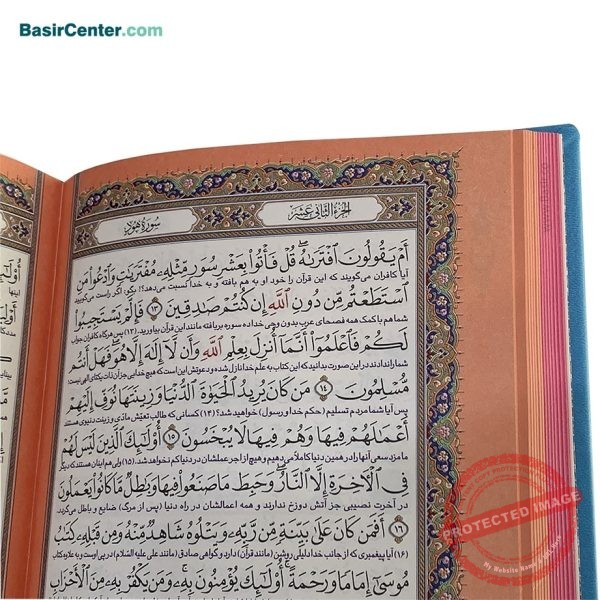 BasirCenter.com
الجزء الثانى عشر
سورة هود
أَمْ يَقُولُونَ افْتَرَىٰهُ قُلْ فَأْتُوا بِعَشْرِ سُوَرٍ مِثْلِهِ مُفْتَرَيَٰتٍ وَادْعُوا مَنِ
آیا کافران می‌گویند که این قرآن را خود او به هم بافته و به خدا نسبت می‌دهد؟! بگو: اگر راست می‌گویید
اسْتَطَعْتُمْ مِنْ دُونِ اللهِ إِنْ كُنْتُمْ صَٰدِقِينَ ١٣ فَإِلَّمْ يَسْتَجِيبُوا
شما هم با کمک همه فصحای عرب بدون وحی خدا ده سوره بر بافته مانند این قرآن بیاورید. (۱۳) پس هرگاه کافران جواب
لَكُمْ فَاعْلَمُوا أَنَّمَا أُنْزِلَ بِعِلْمِ اللهِ وَأَنْ لَا إِلَٰهَ إِلَّا هُوَ فَهَلْ أَنْتُمْ
شما را ندادند در این صورت بدانید که این کتاب به علم خدا نازل شده و دعوتش این است که هیچ خدایی جز آن ذات یکتای الهی نیست؛
مُسْلِمُونَ ١٤ مَنْ كَانَ يُرِيدُ الْحَيَوٰةَ الدُّنْيَا وَزِينَتَهَا نُوَفِّ إِلَيْهِمْ
پس آیا شما مردم تسلیم (حکم خدا و رسول) خواهید شد؟ (۱۴) کسانی که طالب تعیّش مادّی و زینت دنیوی هستند
أَعْمَٰلَهُمْ فِيهَا وَهُمْ فِيهَا لَا يُبْخَسُونَ ١٥ أُولَٰئِكَ الَّذِينَ لَيْسَ لَهُمْ
ما مزد سعی آنها را در همین دنیا کاملاً می‌دهیم و هیچ از اجر عملشان در دنیا کم نخواهد شد. (۱۵) ولی هم اینان هستند که دیگر
فِي الْآخِرَةِ إِلَّا النَّارُ وَحَبِطَ مَا صَنَعُوا فِيهَا وَبَٰطِلٌ مَا كَانُوا يَعْمَلُونَ
در آخرت نصیبی جز آتش دوزخ ندارند و همه اعمالشان در راه دنیا (پس از مرگ) ضایع و باطل می‌گردد
١٦ أَفَمَنْ كَانَ عَلَىٰ بَيِّنَةٍ مِنْ رَبِّهِ وَيَتْلُوهُ شَاهِدٌ مِنْهُ وَمِنْ قَبْلِهِ كِتَٰبُ
(۱۶) آیا پیغمبری که از جانب خدا دلیلی روشن (مانند قرآن) دارد و گواهی صادق (مانند علی علیه السّلام) در پی است و به علاوه کتاب
مُوسَىٰ إِمَامًا وَرَحْمَةً أُولَٰئِكَ يُؤْمِنُونَ بِهِ وَمَنْ يَكْفُرْ بِهِ مِنَ الْأَحْزَابِ
PROTECTED IMAGE